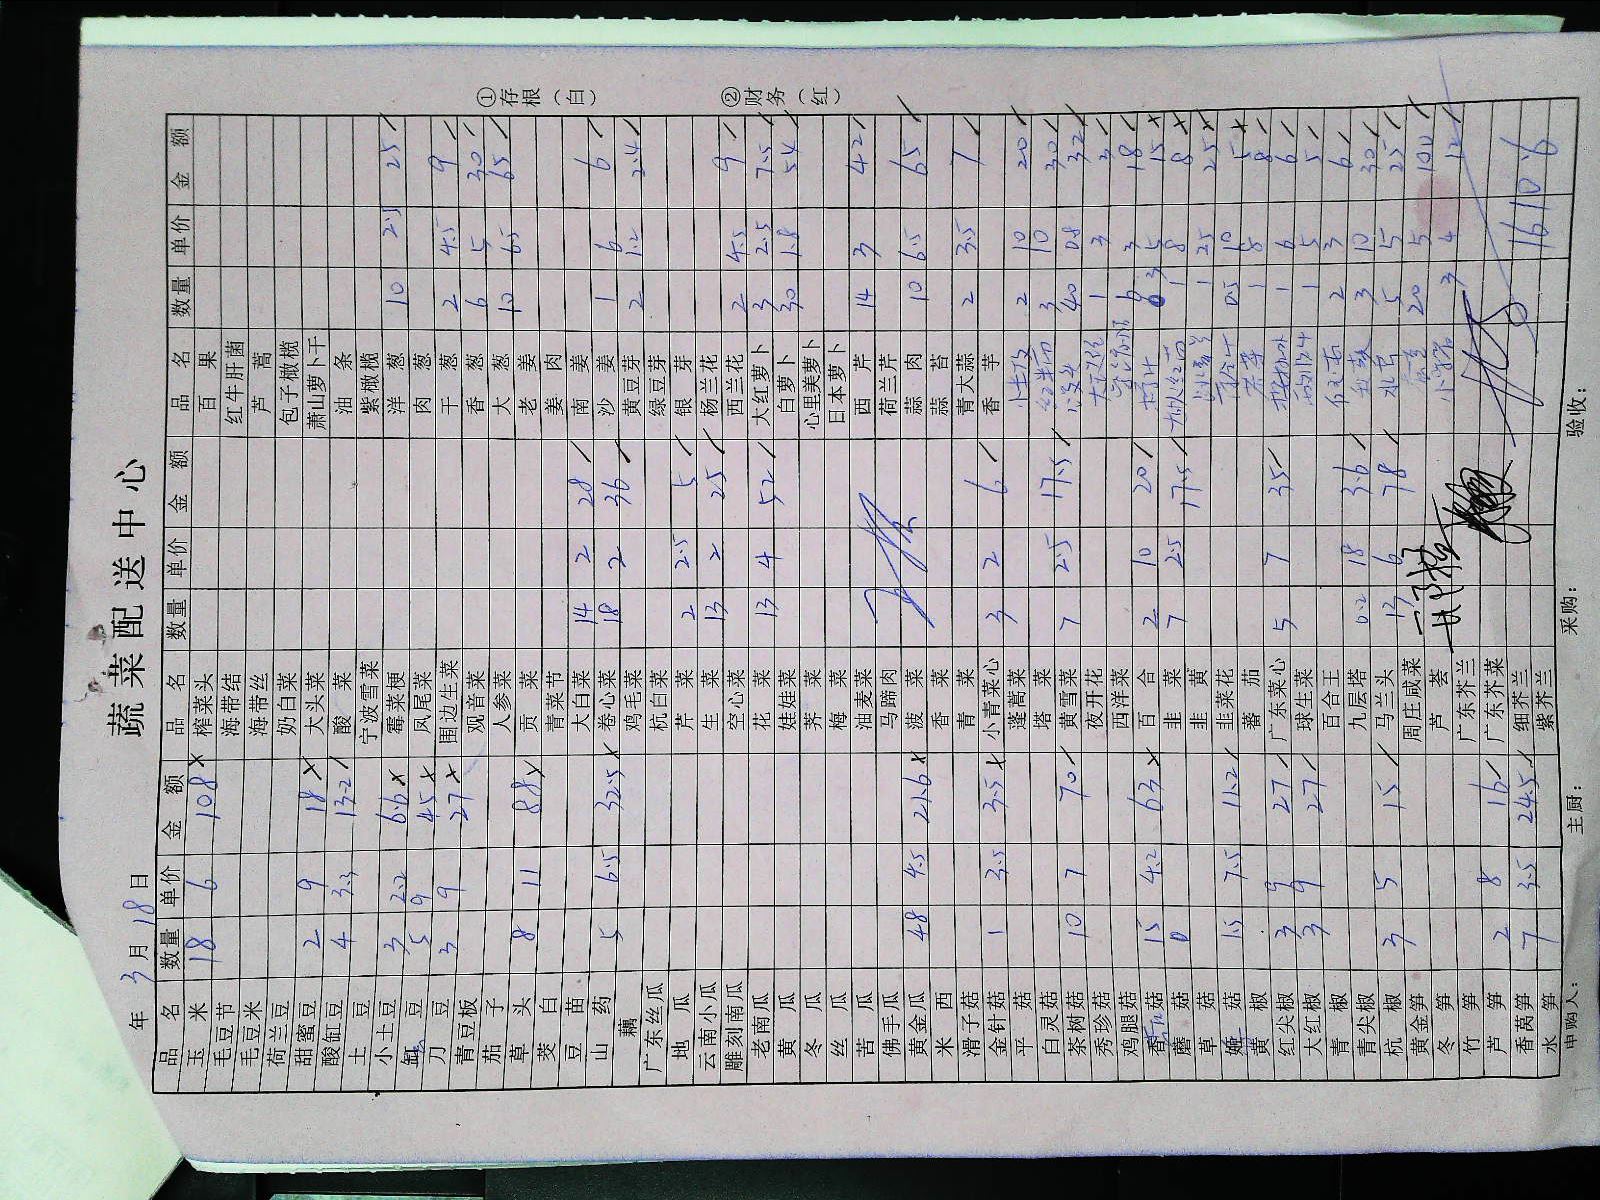 蔬菜配送中心
年 3月18日
品名 数量 单价 金额 品名 数量 单价 金额 品名 数量 单价 金额
玉米 18 6 108 × 榨菜头 百果
毛豆节 海带结 红牛肝菌
毛豆米 海带丝 芦蒿
荷兰豆 奶白菜 包子橄榄
甜蜜豆 2 9 18 × 大头菜 萧山萝卜干
酸缸豆 4 3.3 13.2 酸菜 油条
土豆 宁波雪菜 紫橄榄
小土豆 3 2.2 6.6 × 霉菜梗 洋葱 10 2.5 25
豆 5 9 45 × 凤尾菜 肉葱
刀豆 3 9 27 × 围边生菜 干葱 2 4.5 9
青豆板 观音菜 香葱 6 5 30
茄子 人参菜 大葱 10 6.5 65
草头 8 11 88 × 贡菜 老姜
茭白 青菜节 姜肉
豆苗 大白菜 14 2 28 南姜
山药 5 6.5 32.5 × 卷心菜 18 2 36 沙姜 1 6 6
藕 鸡毛菜 黄豆芽 2 1.2 2.4
广东丝瓜 杭白菜 绿豆芽
地瓜 芹菜 2 2.5 5 银芽
云南小瓜 生菜 13 2 25 杨兰花
雕刻南瓜 空心菜 西兰花 2 4.5 9
老南瓜 花菜 13 4 52 大红萝卜 3 2.5 7.5
黄瓜 娃娃菜 白萝卜 30 1.8 54
冬瓜 荠菜 心里美萝卜
丝瓜 梅菜 日本萝卜
苦瓜 油麦菜 西芹 14 3 42
佛手瓜 马蹄肉 荷兰芹
黄金瓜 48 4.5 21.6 × 菠菜 蒜肉 10 6.5 65
米西 香菜 蒜苔
滑子菇 青菜 青大蒜 2 3.5 7
金针菇 1 3.5 3.5 × 小青菜心 3 2 6 香芋
平菇 蓬蒿菜 2 10 20
白灵菇 塔菜 3 10 30
茶树菇 10 7 70 黄雪菜 7 2.5 17.5 40 0.8 32
秀珍菇 夜开花 1 3 3
鸡腿菇 西洋菜 6 3 18
菇 15 4.2 63 × 百合 2 10 20 3 5 15 ×
蘑菇 韭菜 7 2.5 17.5 1 8 8 ×
草菇 韭黄 1 25 25 ×
菇 1.5 7.5 11.2 韭菜花 0.5 10 5 ×
黄椒 蕃茄 1 8 8
红尖椒 3 9 27 广东菜心 5 7 35 1 6 6
大红椒 3 9 27 球生菜 1 5 5
青椒 百合王 2 3 6
青尖椒 九层塔 0.2 18 3.6 3 10 30
杭椒 3 5 15 马兰头 13 6 78 5 5 25
黄金笋 周庄咸菜 20 5 100
冬笋 芦荟 3 4 12
竹笋 广东芥兰
芦笋 2 8 16 广东芥菜
香莴笋 7 3.5 24.5 细芥兰 1610.6
水笋 紫芥兰
申购人： 主厨： 采购： 验收：
①存根（白） ②财务（红）